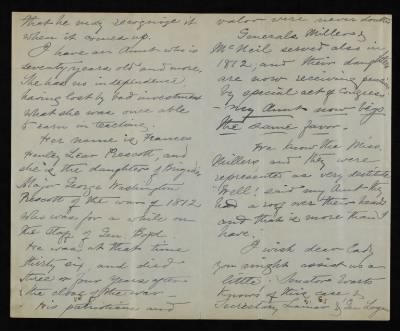 that he may recognize it
when it comes up.
I have an Aunt who is
seventy years old and more,
She has no independence
having lost by bad investment
what she was once able
to earn in teaching.
Her name is Frances
Henley Lear Prescott, and
she is the daughter of Brigade
Major George Washington
Prescott of the war of 1812
who was for a while on
the staff of Gen Boyd.
He was at that time
thirty six and died
three or four years after
the close of the war —
His patriotism and
valor were never doubted
Generals Miller &
McNeil served also in
1812, and their daughters
are now receiving pensions
by special act of Congress
— My Aunt now begs
the same favor.
We know the Miss.
Millers and they were
represented as very destitute
Well! said my Aunt they
had a roof over their heads
and that is more than I
have.
I wish dear Lady
you might assist us a
little. Senator
knows of this case &
Secretary Lamar & Gen Logan